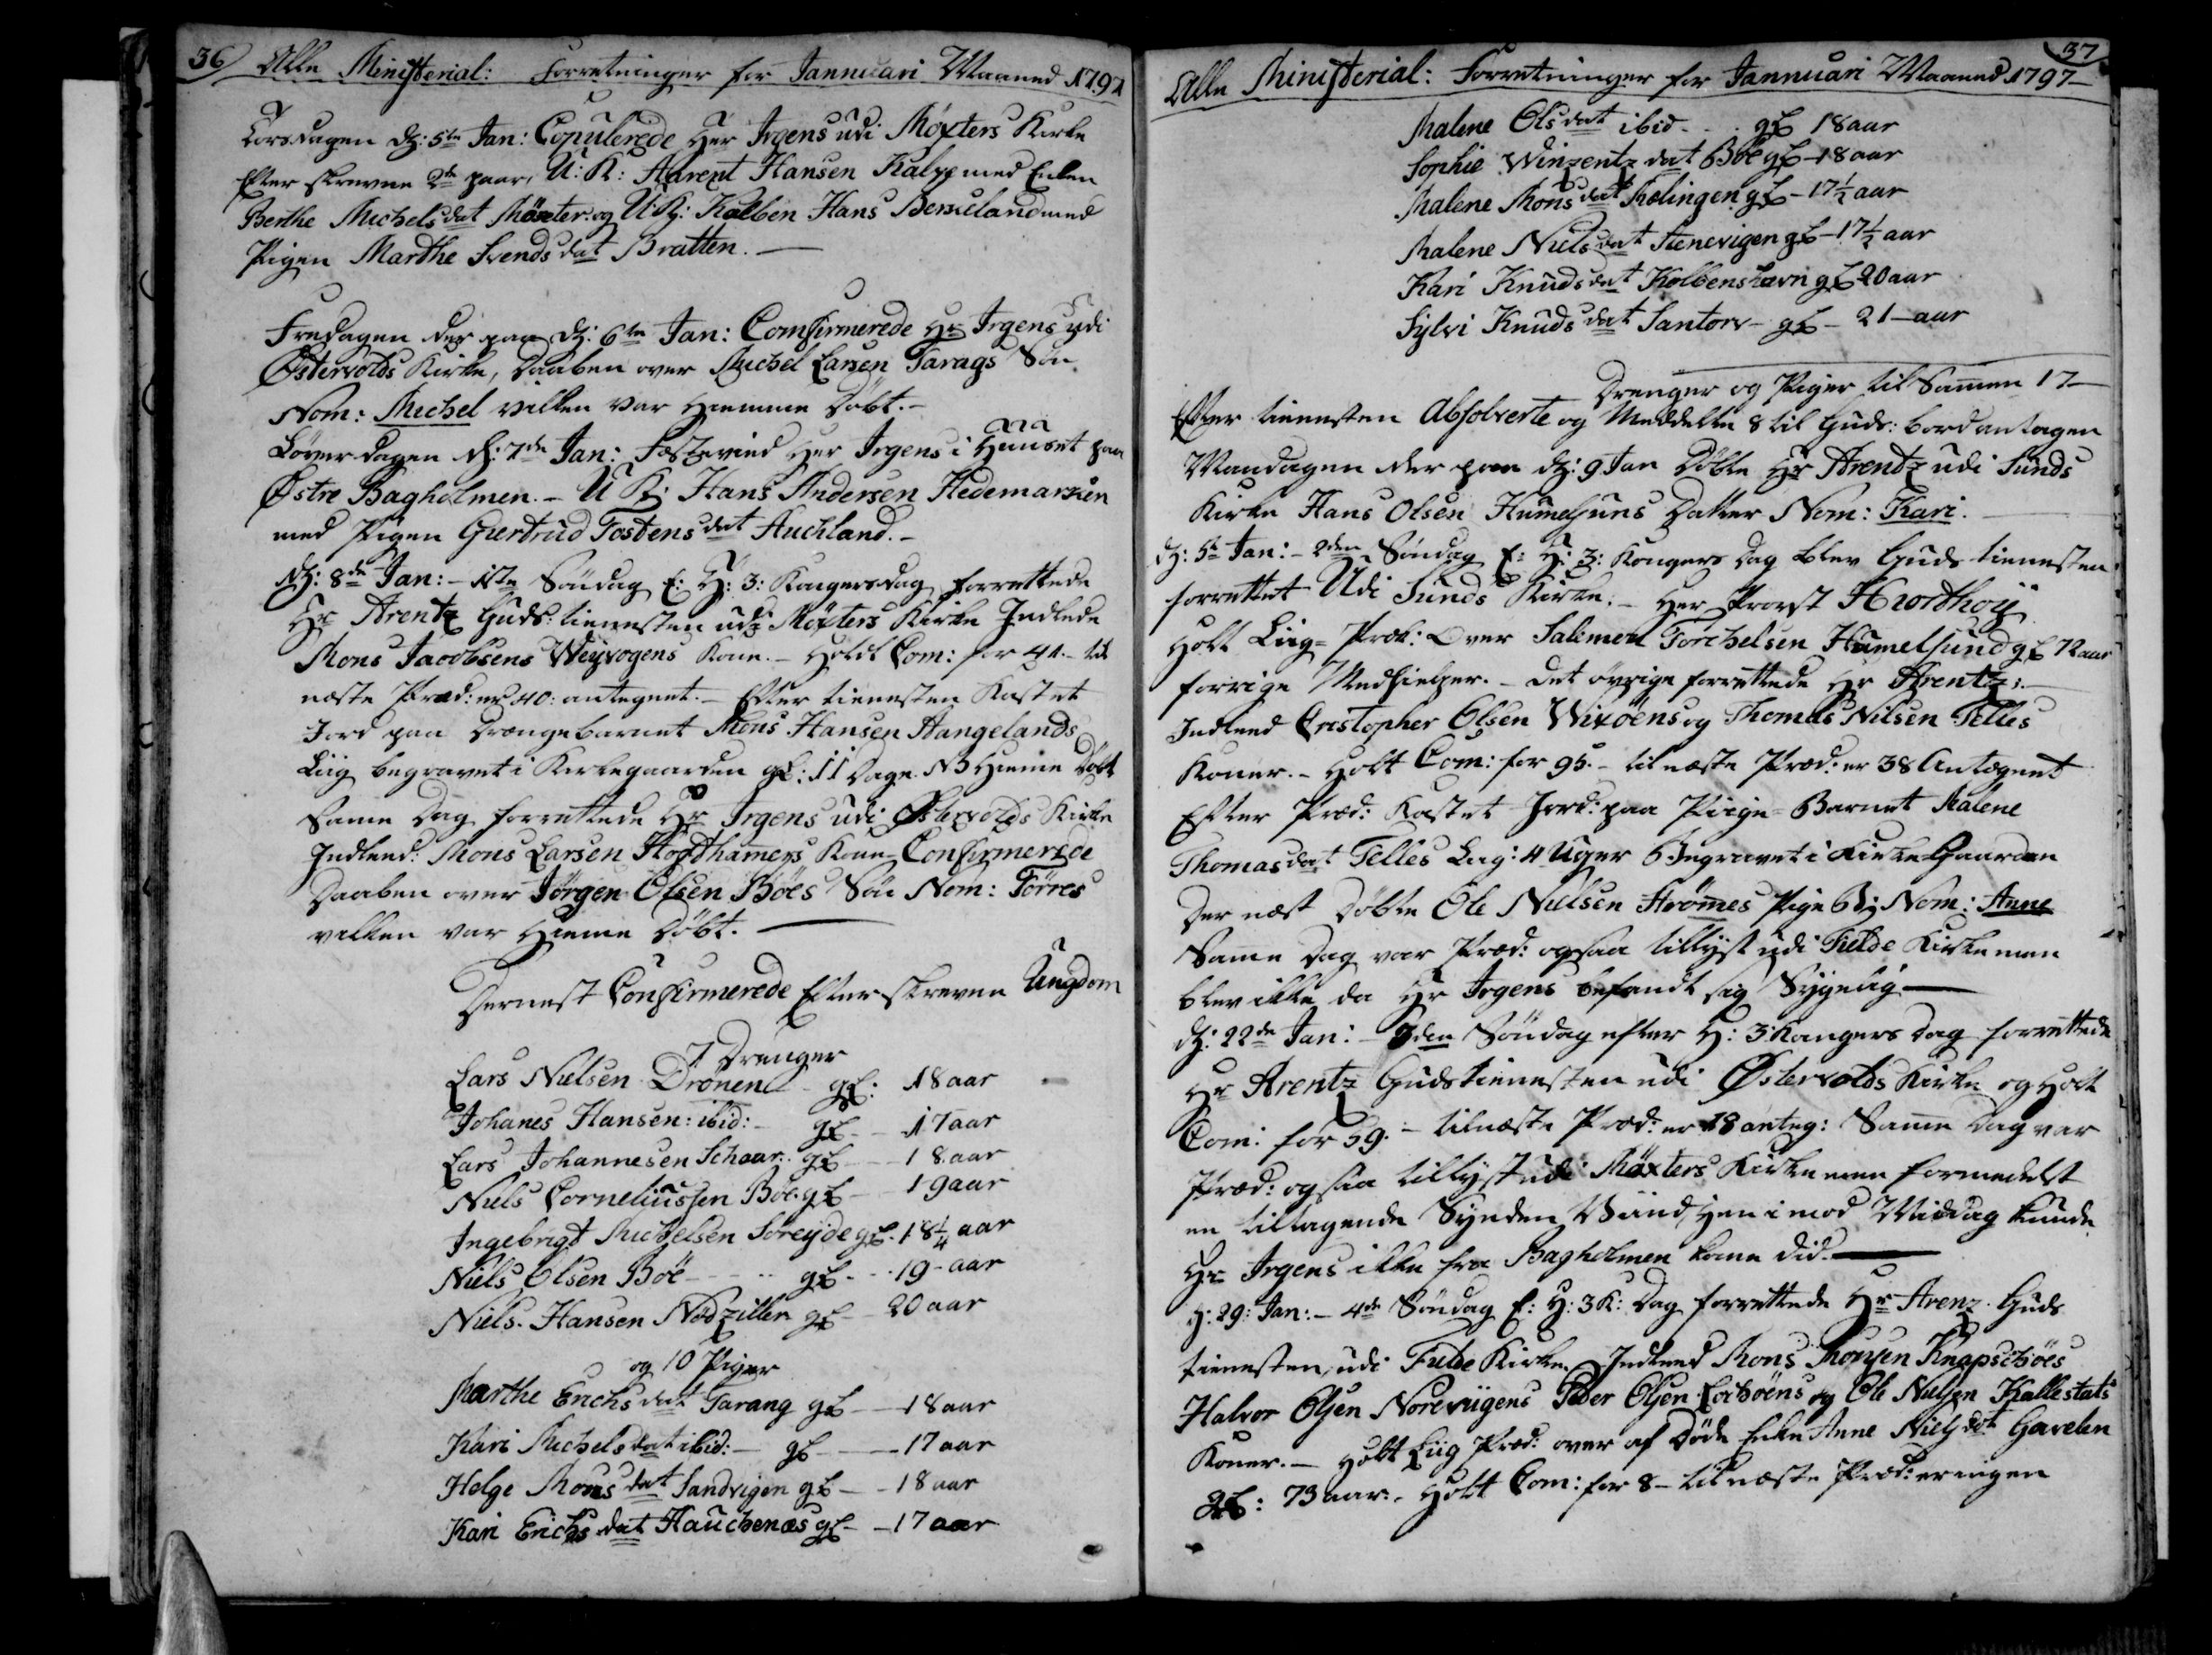 36 Alle Ministerial: Forretninger for Jannuari Maaned 1797
Torsdagen d: 5te Jan: Copulerede Her Irgens udi Møxters Kirke
Efter skrevne 2de paar, U: K: Aarent Hansen Kalpp med Enken
Berthe Michelsdat Møxter og U: K: Kolben Hans Berscland med
Pigen Marthe Svendsdat Bratten. —
Fredagen der paa d: 6te Jan: Comfirmerede Hr Irgens udi
Østervolds Kirke, Daaben over Michel Larsen Tarags Søn
Nom: Michel vilken var Hiemme Døbt. –
Løverdagen d: 7de Jan: Her Irgens i Huuset paa
Østre Bagholmen. – U K: Hans Andersen Hedemarken
med Pigen Giertrud Tostensdat Auchland. –
d: 8de Jan: – 1ste Søndag E: H: 3: Kongersdag forrettede
Hr Arentz Guds: tienesten udi Møxters Kirke Indlede
Mons Jacobsens Weyvogens Kone. – Holdt Com: for 41. – til
næste Præd: er 40: antegnet. – Efter tienesten Kastet
Jord paa Drengebarnet Mons Hansen Hangelands
Liig begravet i Kirkegaarden gl: 11 Dage. NB Hieme Døbt
Samme Dag forrettede Hr Irgens udi Østervolds Kirke
Indleed: Mons Larsen Hopthamers Kone Confirmerede
Daaben over Jørgen Olsen Bøes Søn Nom: Torres
vilken var Hieme Døbt. —
Dernest Confirmerede Efter skrevene Ungdom
7 Drenger
Lars Nielsen Drønen gl: 18 aar
Johanes Hansen: ibid: – gl – 17 aar
Lars Johannesen Schaar: gl – 18 aar
Niels Corneliussen Bøe gl – 19 aar
Ingebrigt Michelsen Soreyde gl. 18 1/4 aar
Niels Olsen Bøe – gl – 19 – aar
Niels Hansen Nødziller gl – 20 aar
og 10 Piger
Marthe Erichsdat Tarang gl – 18 aar
Kari Michelsdat ibid: – gl – 17 aar
Helge Monsdat Sandvigen gl – 18 aar
Kari Erichsdat Hauchenæs gl – 17 aar
37
Alle Ministerial: Forretninger for Jannuari Maaned 1797 –
Malene Olsdat ibid – gl 18 aar
Sophie Winzentzdat Bøe gl – 18 aar
Malene Monsdat Kolingen gl – 17 1/2 aar
Malene Nielsdat Stenevigen gl – 17 1/2 aar
Kari Knudsdat Kolbenshavn gl 20 aar
Sylvi Knudsdat Santorv – gl – 21 – aar
Drenger og Piger til Samen 17 –
Efter tienesten Absolverte og Meddeelte 8 til Guds: bord antagen
Mandagen der paa d: 9 Jan Døbte Hr Arentz udi Sunds
Kirke Hans Olsen Humelsuns Datter Nom: Kari. —
d: 5te Jan: – 2den Søndag E: H: 3: Kongers Dag blev Guds tienesten
forrettet Udi Sunds Kirke. – Her Provst Hrotthoy
Holt Liig= Præk: Over Salemon Torchelsen Humelsund gl 72 aar
forrige Medhielper. – det øvrige forrettede Hr Arentz. —
Indleed Cristopher Olsen Wixøens og Thomas Nilsen Telles
Koner. – Holt Com: for 95. – til næste Præd: er 38 Antegnet
Efter Præd: Kastet Jord: paa Piige=Barnet Malene
Thomasdat Telles Lag: 4 Uger Begravet i Kirke Gaarden
Der næst Døbte Ole Nielsen Strømes Pige B: Nom: Anne
Samme Dag var Præd: ogsaa tillyst udi Fielde Kirke men
blev ikke da Hr Irgens befandt sig Sygelig —
d: 22de Jan: – 3den Søndag efter H: 3 Kongers Dag forrettede
Hr Arentz Gudstienesten udi Østervolds Kirke og Holt
Com: for 59. – til næste Præd: er 18 anteg: Samme Dag var
Præd: ogsaa tillyst udi Møxters Kirke men formedelst
en tiltagende Synden Vind, Hen imod Middag kunde
Hr Irgens ikke fra Bagholmen kome did. —
d: 29: Jan: – 4de Søndag E: H: 3 K: Dag forrettede Hr Arenz Guds
tienesten udi Fielde Kirke. Indleed Mons Monsen Knapschøes
Halvor Olsen Norevigens Peder Olsen Lochøens og Ole Nielsen Kallestats
Koner. – Holt Liig Præd: over af Døde Enke Anne Nielsdat Gavelen
gl: 73 aar. – Holt Com: for 8 – til næste Præd: er ingen